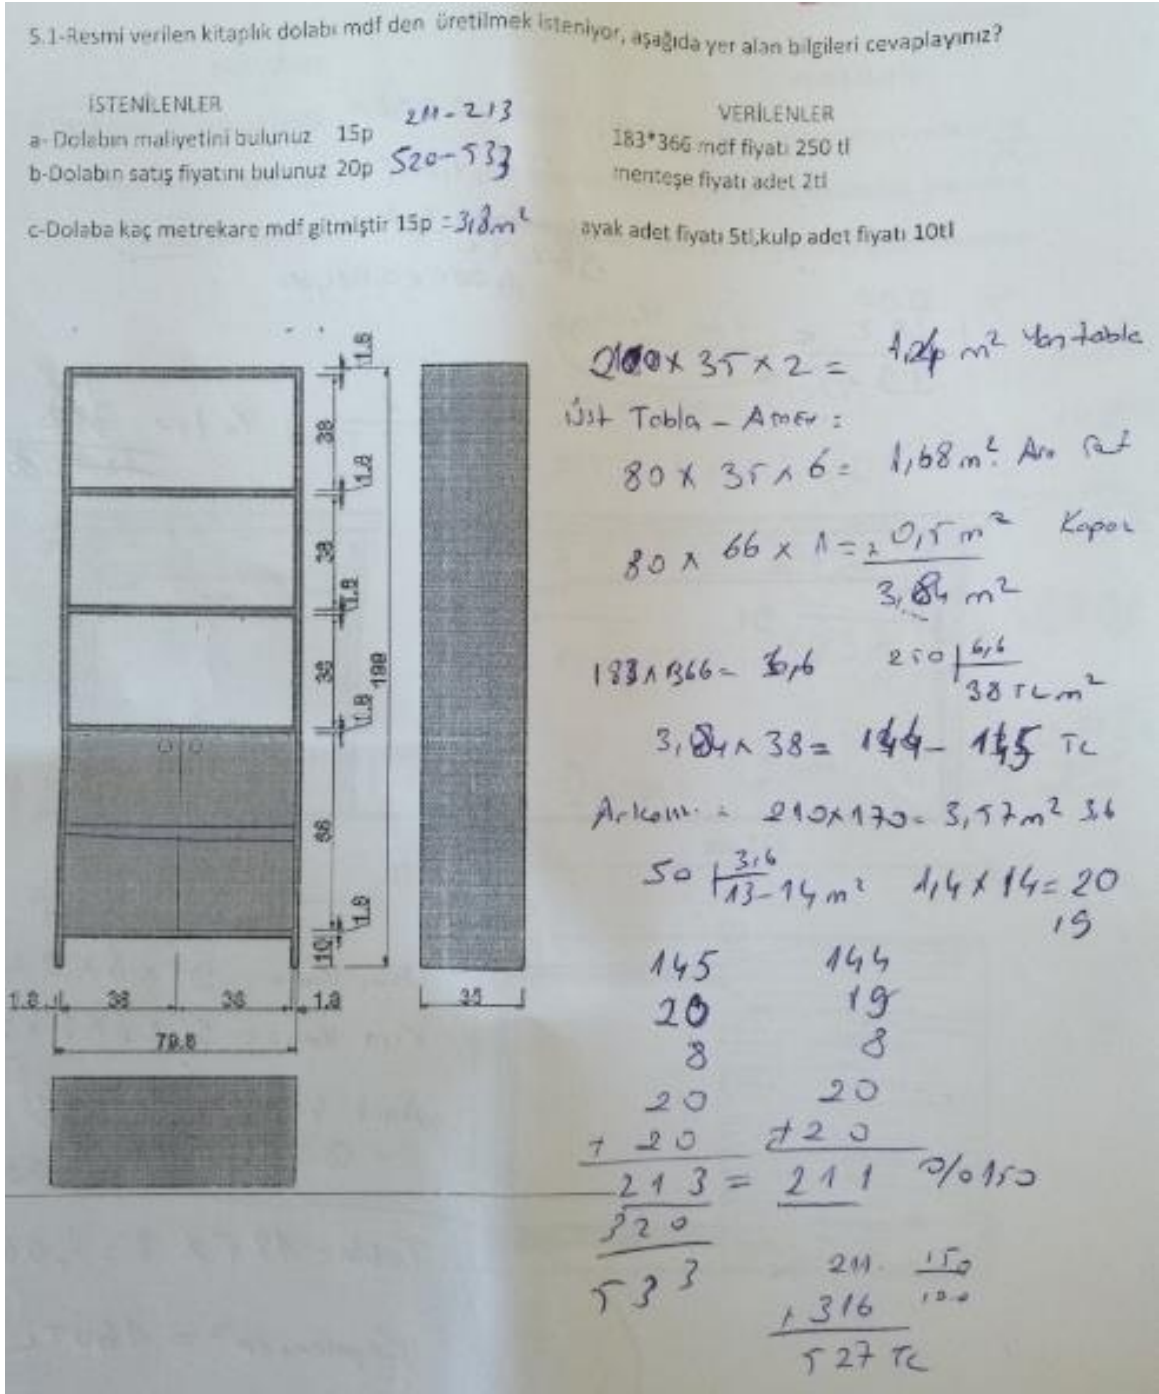 5.1-Resmi verilen kitaplık dolabı mdf den üretilmek isteniyor, aşağıda yer alan bilgileri cevaplayınız?
İSTENİLENLER
211-213
a- Dolabın maliyetini bulunuz 15p
b-Dolabın satış fiyatını bulunuz 20p 520-533
c-Dolaba kaç metrekare mdf gitmiştir 15p = 3,8m²
VERİLENLER
183*366 mdf fiyatı 250 tl
menteşe fiyatı adet 2tl
ayak adet fiyatı 5tl,kulp adet fiyatı 10tl
1.8
38
1.8
38
1.8
38
1.8
199
66
1.8
10
1.8 38 38 1.8
79.8
35
x 35 x 2 = m² Yan tabla
Üst Tabla -
80 x 35 x 6 = 1,68 m²
80 x 66 x 1 = 0,5 m² Kapak
3,84 m²
183x366= 6,6 250 6,6
38 TL m²
3,84 x 38 = 144 - 145 TL
210x170= 3,57m² 3,6
50 3,6
13-14 m² 1,4 x 14 = 20
19
145 144
20 19
8 8
20 20
+ 20 + 20
213 = 211 %150
320
533
211 150
100
+ 316
527 TL